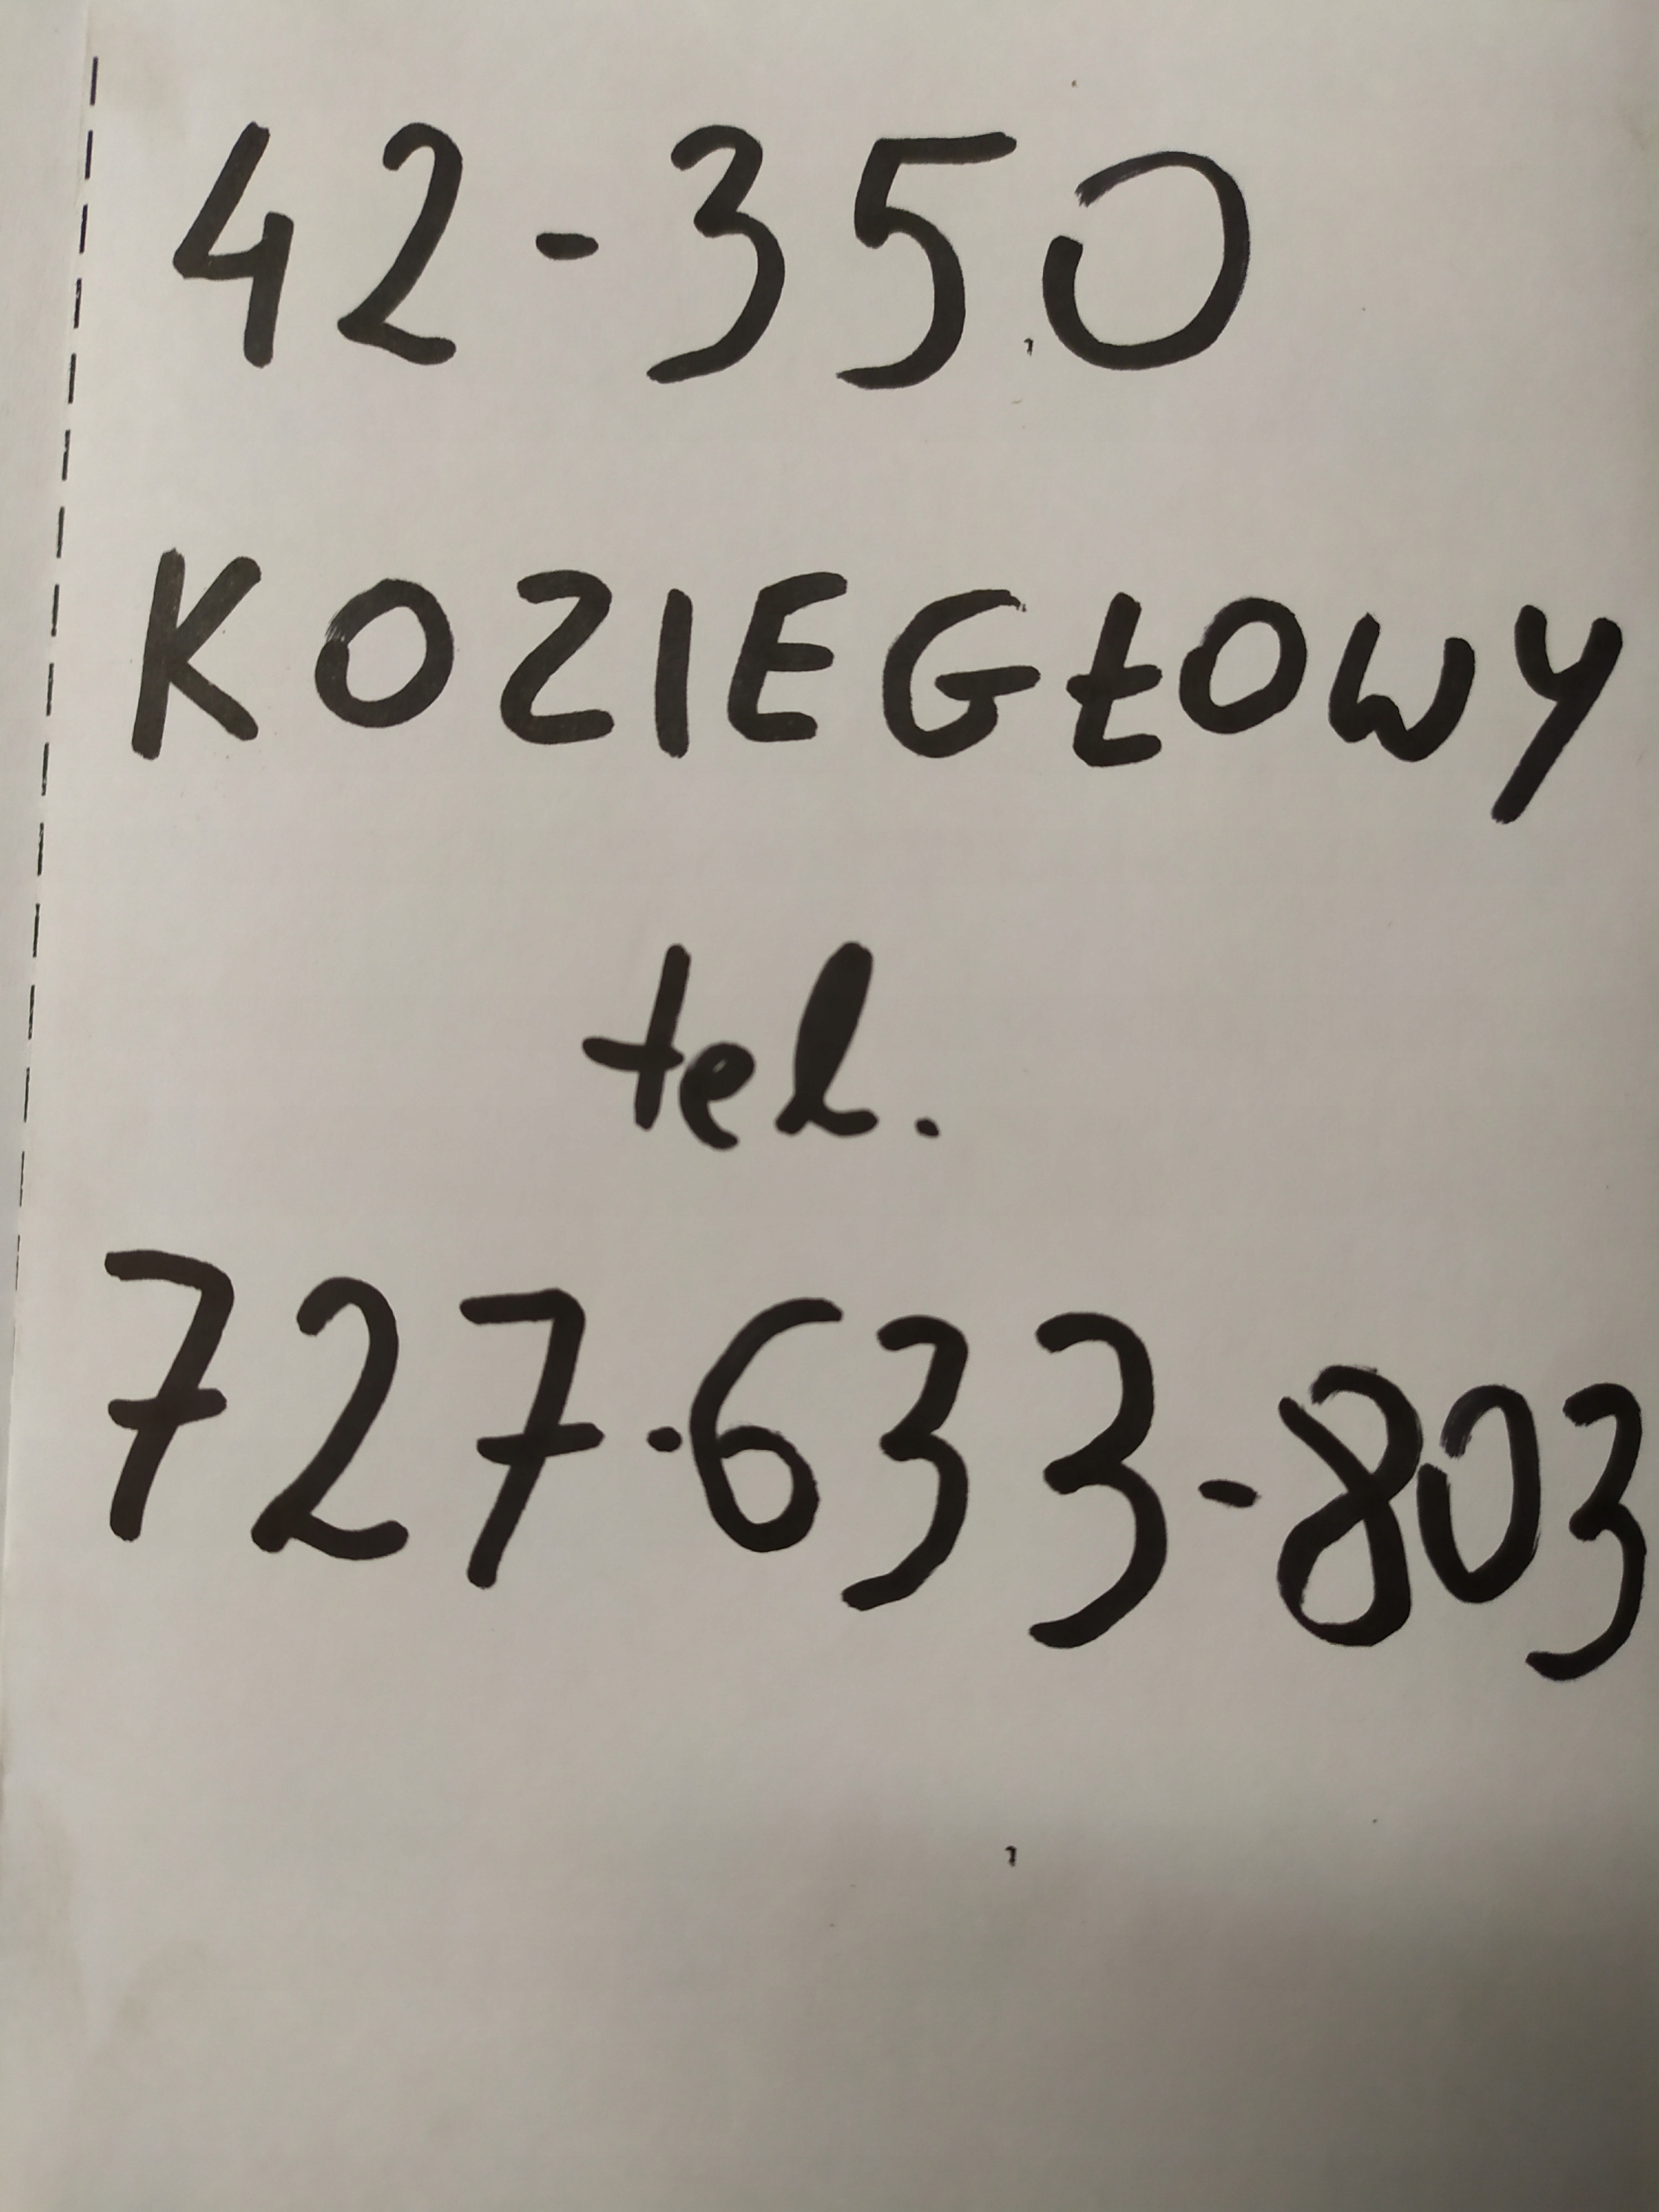 42-350
KOZIEGŁOWY
tel.
727-633-803